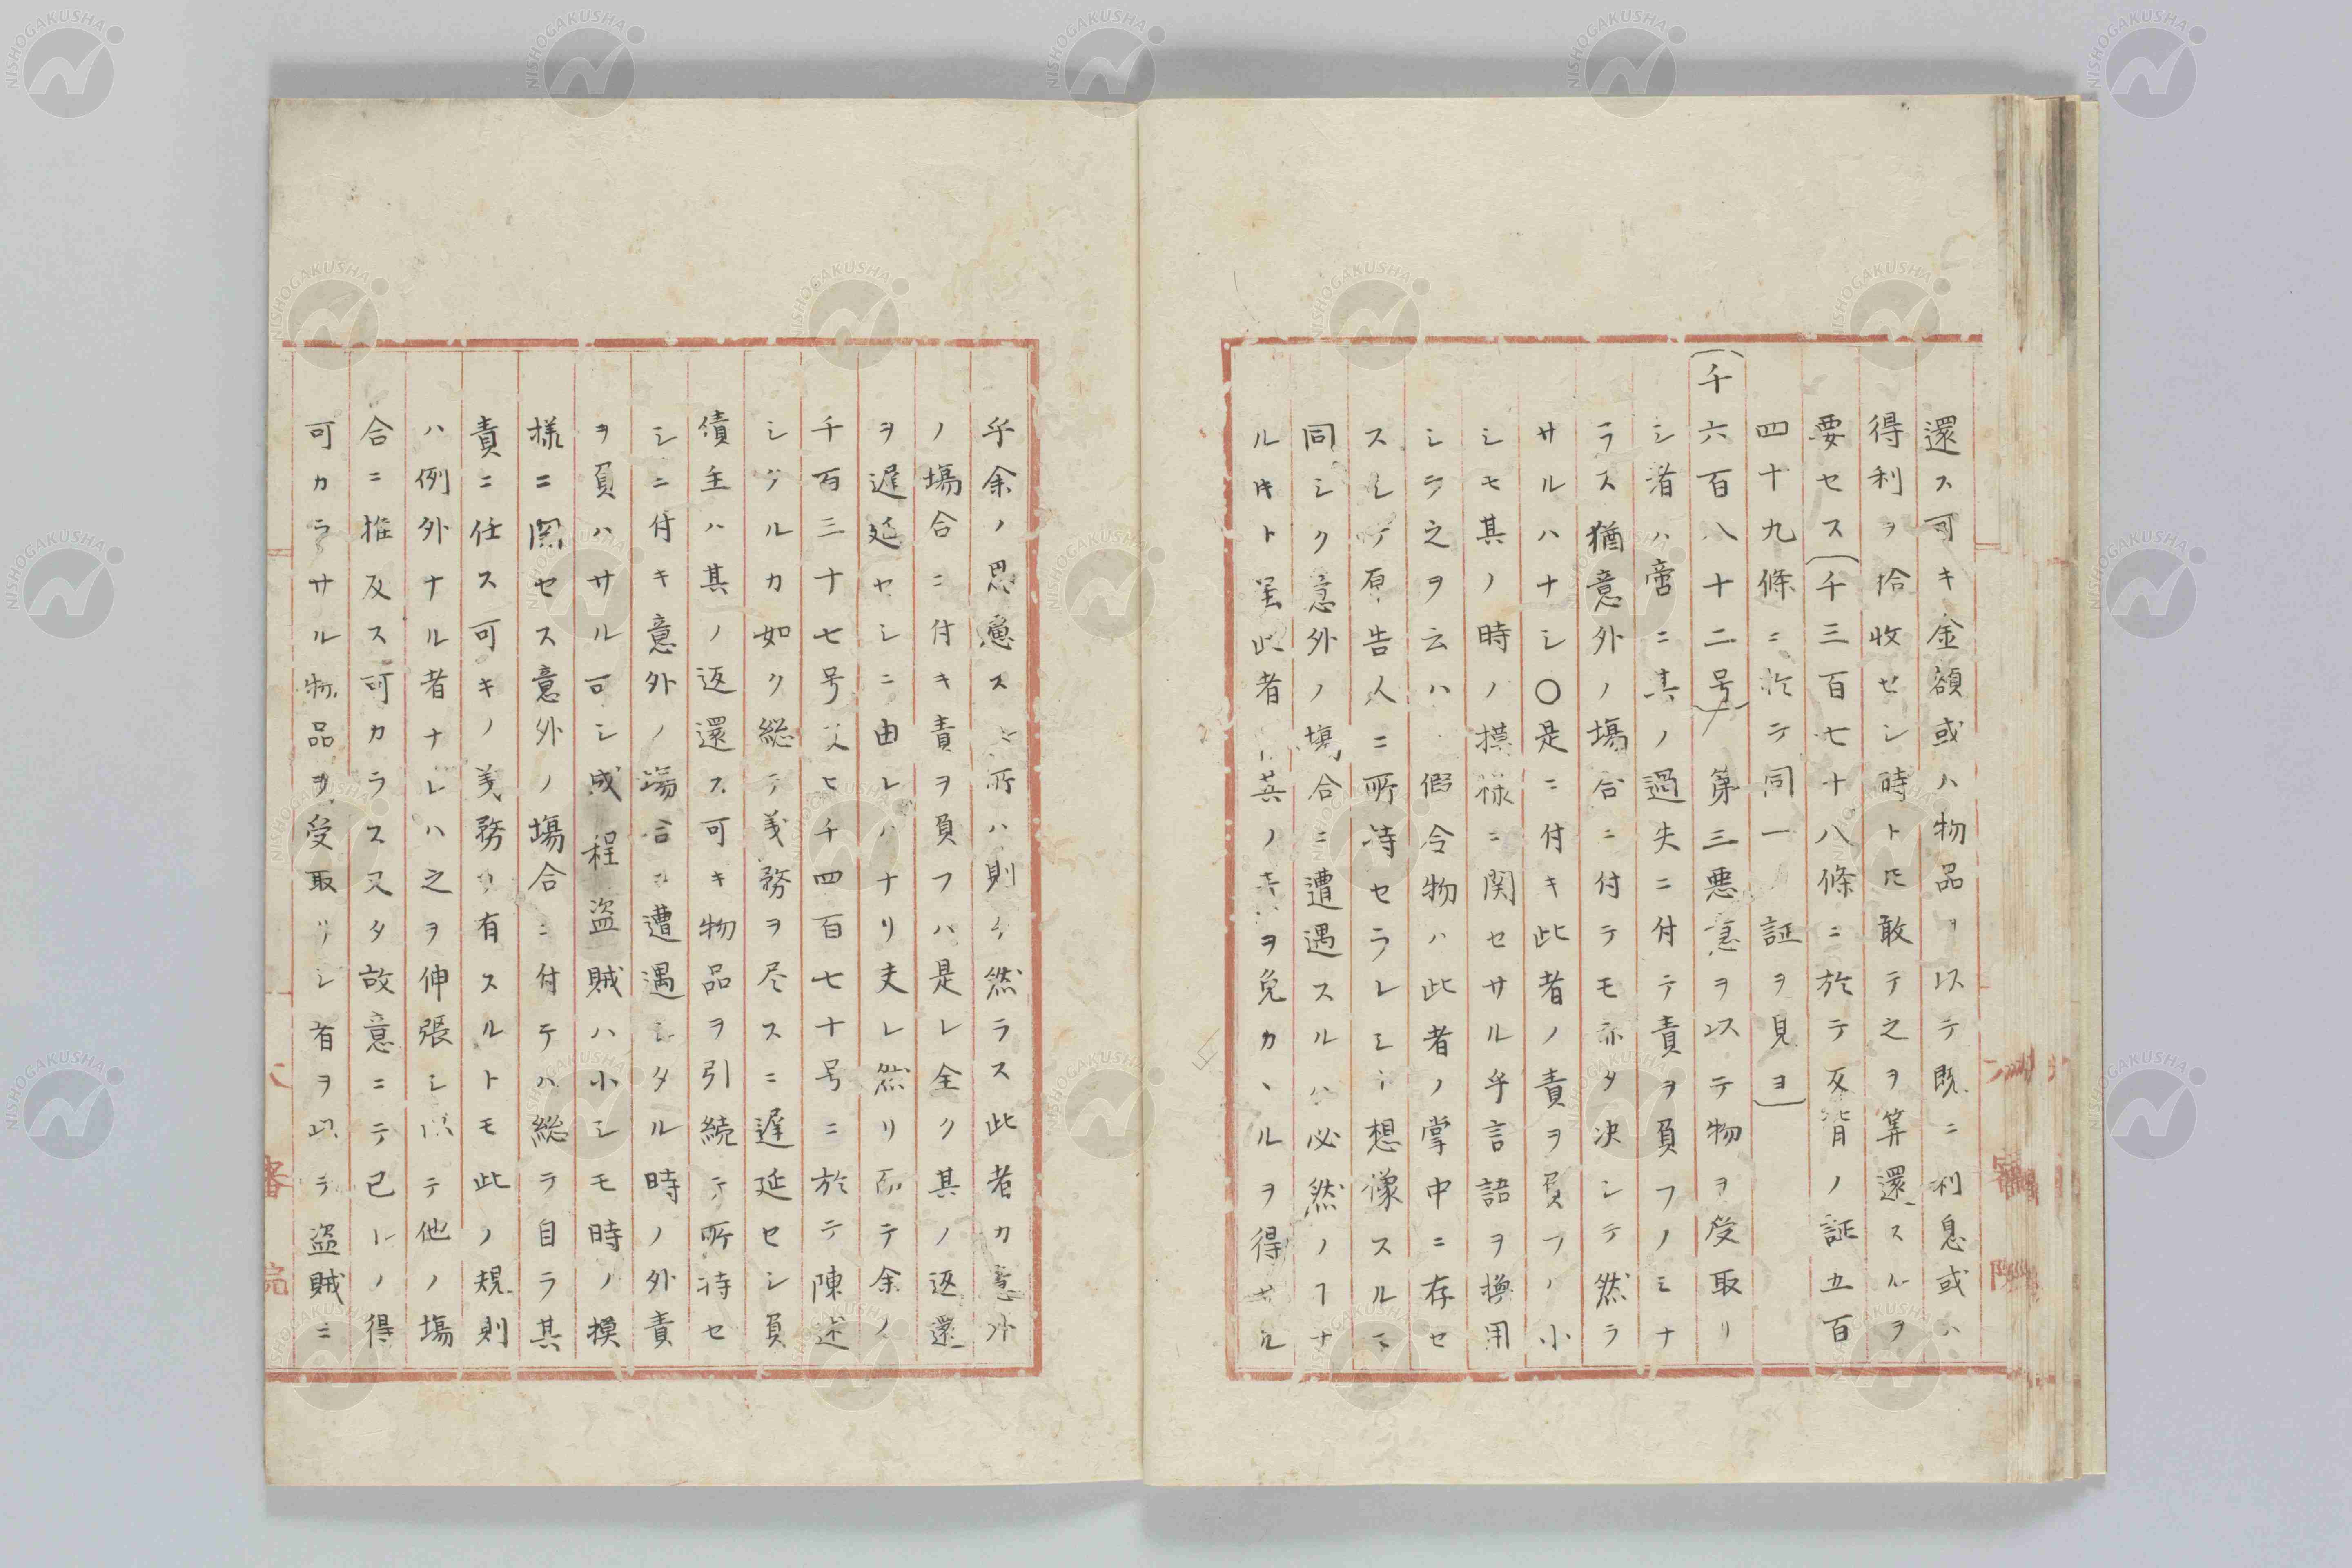 還ス可キ金額或ハ物品ヲ以テ既ニ利息或ハ
得利ヲ拾收セシ時ト𪜈敢テ之ヲ算還スルヲ
要セス(千三百七十八條ニ於テ反背ノ証五百
四十九條ニ於テ同一ノ証ヲ見ヨ)
(千六百八十二号)第三悪意ヲ以テ物ヲ受取リ
シ者ハ啻ニ其ノ過失ニ付テ責ヲ負フノミナ
ラス猶意外ノ塲合ニ付テモ亦タ决シテ然ラ
サルハナシ〇是ニ付キ此者ノ責ヲ負フノ小
シモ其ノ時ノ摸様ニ関セサル乎言語ヲ換用
シテ之ヲ云ハ假令物ハ此者ノ掌中ニ存セ
スシテ原告人ニ所持セラレシ想像スルニ
同シク意外ノ塲合ニ遭遇スルハ必然ノヿナ
ル𪜈此者其ノ責ヲ免カヽルヲ得サル
乎余ノ思慮スル所ハ則チ然ラス此者カ意外
ノ塲合ニ付キ責ヲ負フハ是レ全ク其ノ返還
ヲ遅延セシニ由レハナリ夫レ然リ而テ余ノ
千百三十七号及ヒ千四百七十号ニ於テ陳述
シタルカ如ク総テ義務ヲ尽スニ遅延セシ負
債主ハ其ノ返還ス可キ物品ヲ引続テ所持セ
シニ付キ意外ノ塲合ニ遭遇シタル時ノ外責
ヲ負ハサル可シ成程盗賊ハ小シモ時ノ摸
様ニ関セス意外ノ塲合ニ付テハ総テ自ラ其
責ニ任ス可キノ義務ヲ有スルトモ此ノ規則
ハ例外ナル者ナレハ之ヲ伸張シ以テ他ノ塲
合ニ推及ス可カラス又タ故意ニテ已レノ得
可カラサル物品ヲ受取リシ者ヲ以テ盗賊ニ
NISHOGAKUSHA